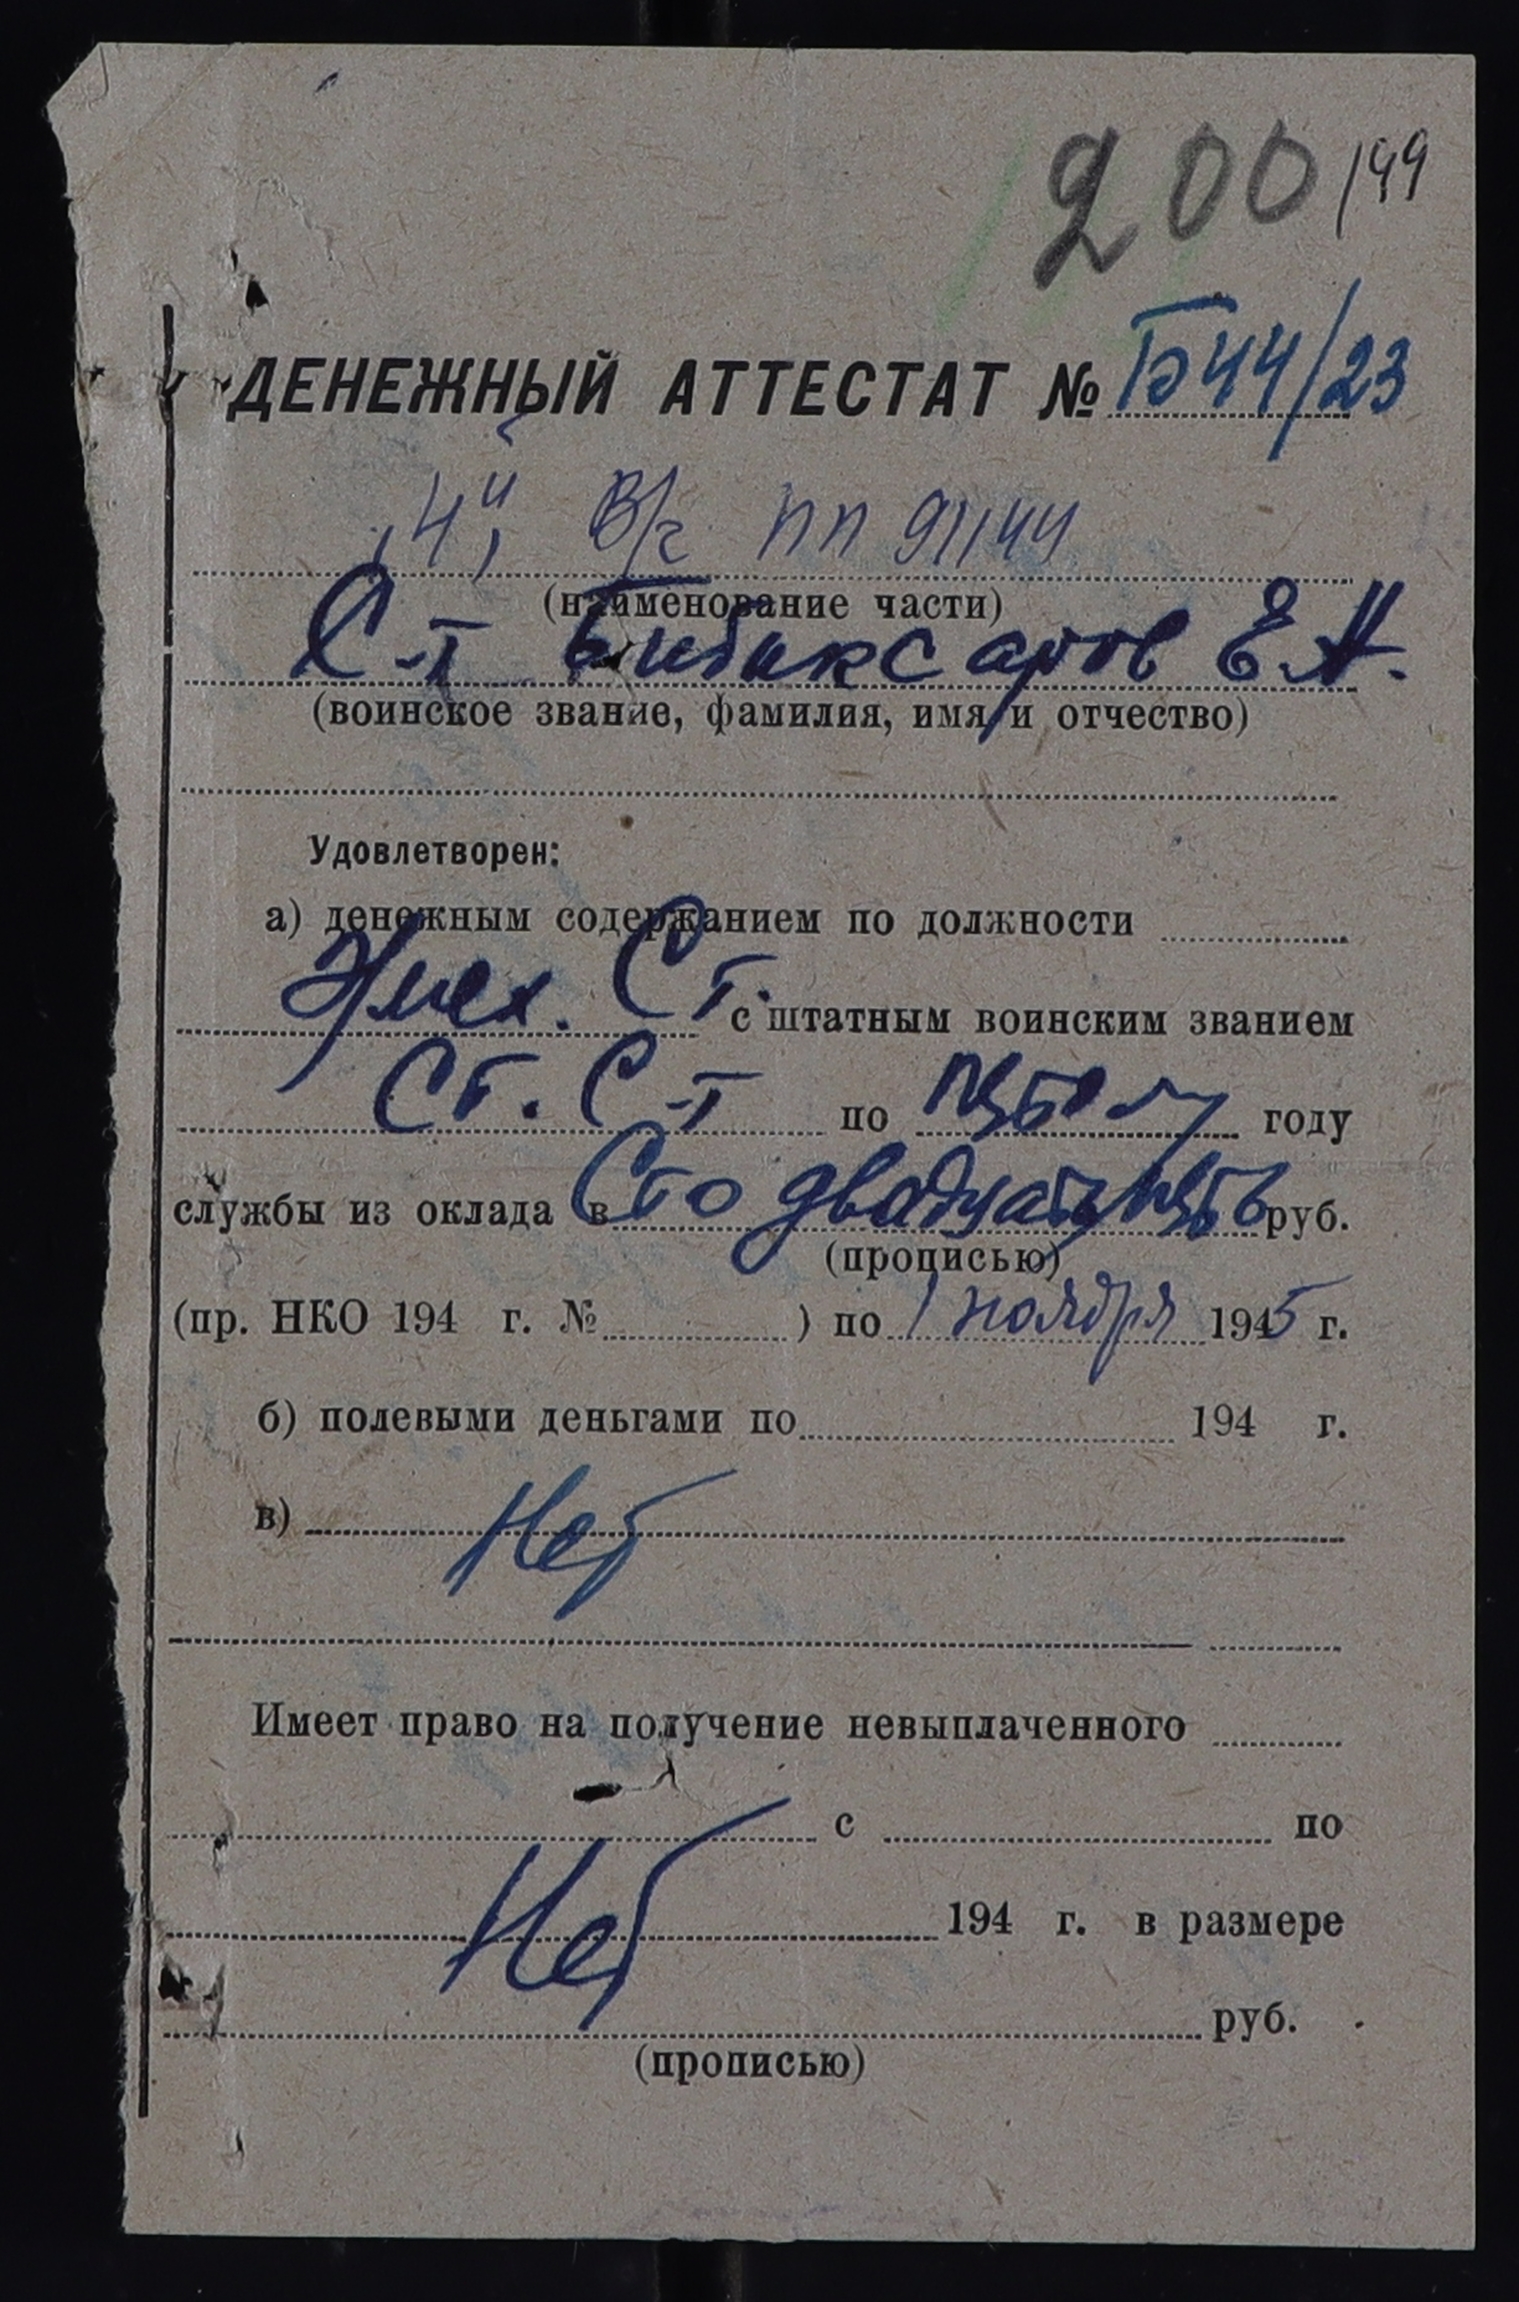 200/199
ДЕНЕЖНЫЙ АТТЕСТАТ № Б44/23
"4" В/г пп 91144
(наименование части)
С-т Бибиксаров Е.А.
(воинское звание, фамилия, имя и отчество)
Удовлетворен:
а) денежным содержанием по должности
Ст. с штатным воинским званием
Ст. С-т по году
службы из оклада в Сто двадцать пять руб.
(прописью)
(пр. НКО 194 г. № ) по 1 ноября 1945 г.
б) полевыми деньгами по 194 г.
в) Нет
Имеет право на получение невыплаченного
с по
Нет 194 г. в размере
руб.
(прописью)